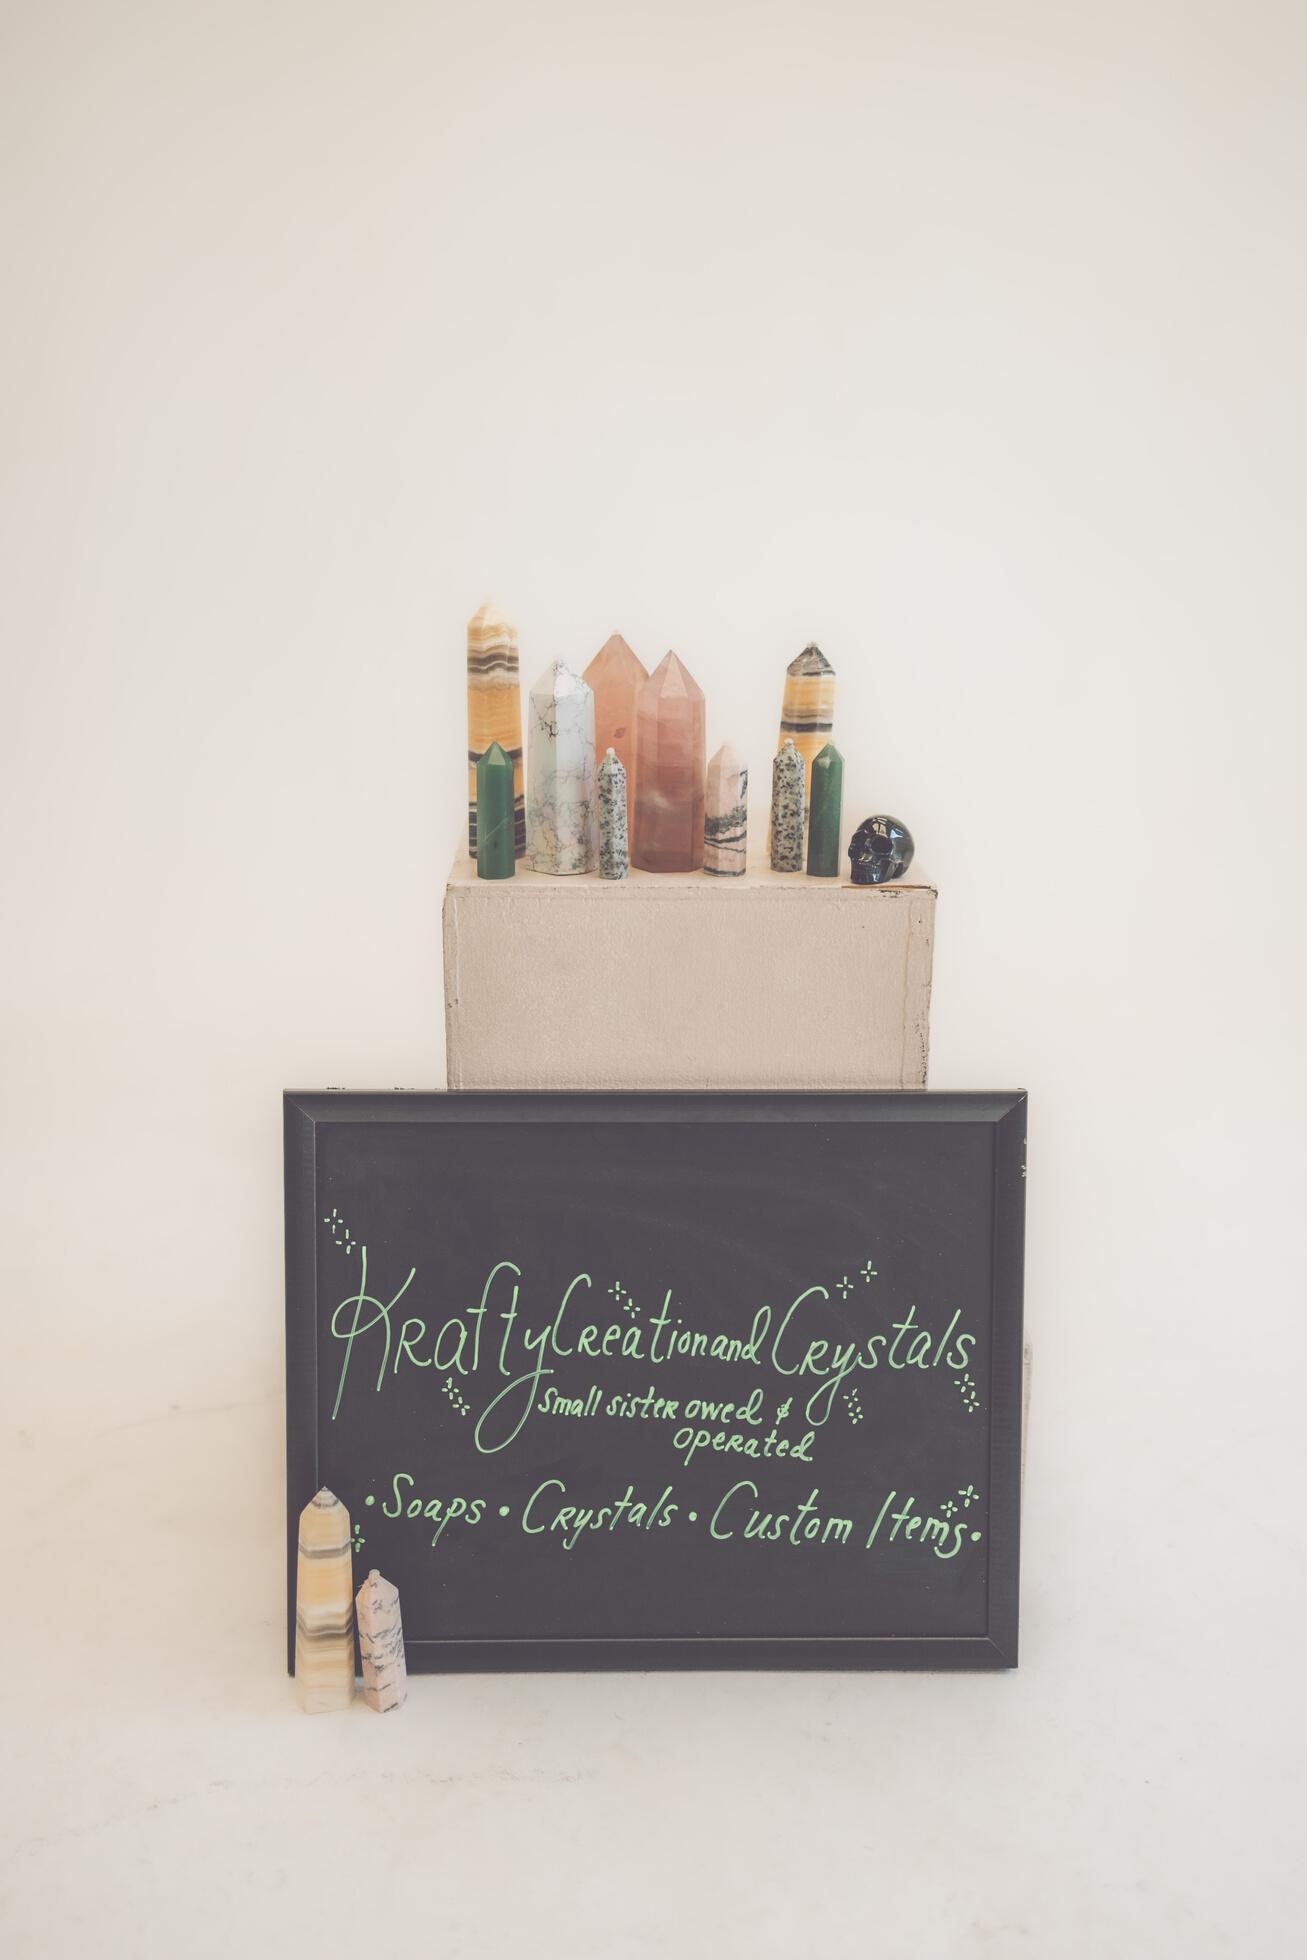 KraftyCreationandCrystals
Small sister owed &
operated
•Soaps • Crystals • Custom Items•